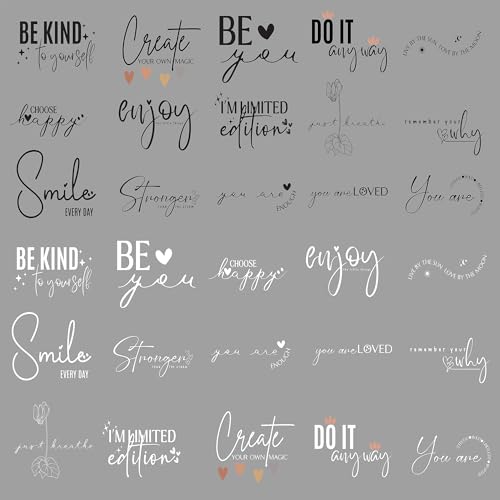 BE KIND
to yourself
Create
YOUR OWN MAGIC
BE
you
DO IT
any way
LIVE BY THE SUN, LOVE BY THE MOON
CHOOSE
happy
enjoy
I'M LIMITED
edition
just breathe
remember your
why
Smile
EVERY DAY
Stronger
THAN THE STORM
you are
ENOUGH
you are LOVED
You are
BE KIND
to yourself
BE
you
CHOOSE
happy
enjoy
LIVE BY THE SUN, LOVE BY THE MOON
Smile
EVERY DAY
Stronger
THAN THE STORM
you are
ENOUGH
you are LOVED
remember your
why
just breathe
I'M LIMITED
edition
Create
YOUR OWN MAGIC
DO IT
any way
You are